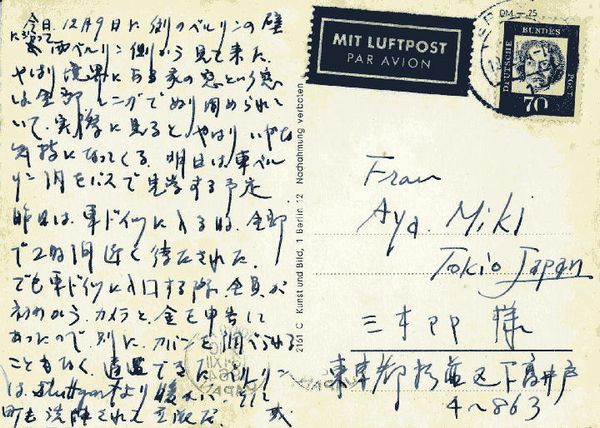 今日、12月9日に例のベルリンの壁
に沿って西ベルリン側から見て来た。
やはり境界にある家の窓という窓
は全部レンガでぬり固められて
いて、実際に見ると、やはりいやな
気持になってくる。明日は東ベル
リン内をバスで見学する予定
昨日は、東ドイツに入るのに全部
で2時間近く待たされた。
でも東ドイツに入口する際、全員が
初めから、カメラと、金を申告に
あったので、別にカバンを調べられる
こともなく、通過できる。ベルリン
は、Stuttgartより暖い。そして
町も洗練されて立派だ。
MIT LUFTPOST
PAR AVION
DEUTSCHE BUNDESPOST
70
2161 C Kunst und Bild, 1 Berlin 12 Nachahmung verboten
Frau
Aya Miki
Tokio Japan
三木 様
東京都杉並区下高井戸
4~863